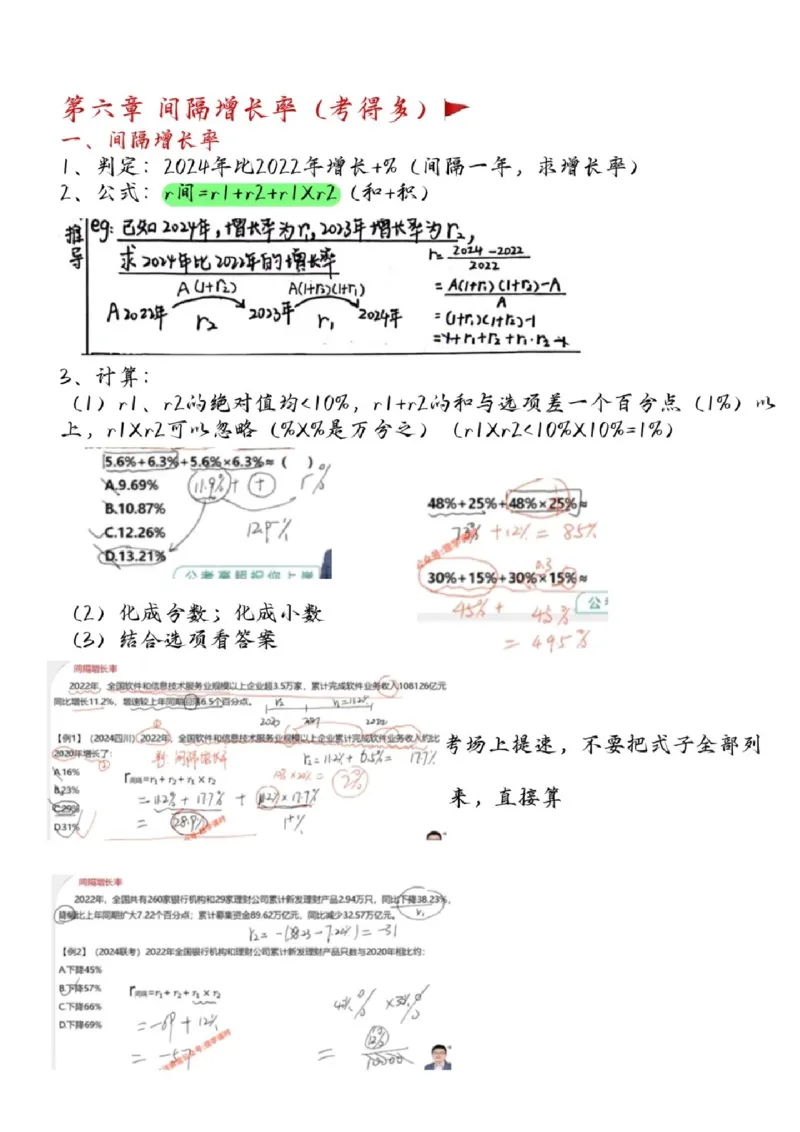 第六章 间隔增长率（考得多）
一、间隔增长率
1、判定：2024年比2022年增长+%（间隔一年，求增长率）
2、公式：r间=r1+r2+r1×r2（和+积）
推导
eg: 已知2024年,增长率为r₁,2023年增长率为r₂,
求2024年比2022年的增长率
r= 2024-2022
2022
A(1+r₂) A(1+r₂)(1+r₁)
= A(1+r₁)(1+r₂)-A
A
A2022年 2023年 2024年
r₂ r₁
=(1+r₁)(1+r₂)-1
=1+r₁+r₂+r₁·r₂-1
3、计算：
（1）r1、r2的绝对值均<10%，r1+r2的和与选项差一个百分点（1%）以
上，r1×r2可以忽略（%×%是万分之）（r1×r2<10%×10%=1%）
5.6%+6.3%+5.6%×6.3%≈（ ）
A.9.69% 11.9% + +
B.10.87%
C.12.26% 12.9%
D.13.21%
48%+25%+48%×25%≈
73% +12% = 85%
30%+15%+30%×15%≈
0.3
45% + 4.5%
= 49.5%
（2）化成分数；化成小数
（3）结合选项看答案
间隔增长率
2022年，全国软件和信息技术服务业规模以上企业超3.5万家，累计完成软件业务收入108126亿元
同比增长11.2%，增速较上年同期回落6.5个百分点。
r₂ r₁=11.2%
2020 2021 2022
【例1】（2024四川）2022年，全国软件和信息技术服务业规模以上企业累计完成软件业务收入约比
2020年增长了：
间隔增长率
r₂=11.2%+6.5%= 17.7%
A.16%
B.23%
C.29%
D.31%
r间隔=r₁+r₂+r₁×r₂
=11.2%+17.7% + 11.2%×17.7%
= 28.9% 1+%
2%
考场上提速，不要把式子全部列
来，直接算
间隔增长率
2022年，全国共有260家银行机构和29家理财公司累计新发理财产品2.94万只，同比下降38.23%，
降幅比上年同期扩大7.22个百分点；累计募集资金89.62万亿元、同比减少32.57万亿元。
r₁
r₂= -(38.23-7.22)= -31
【例2】（2024联考）2022年全国银行机构和理财公司累计新发理财产品只数与2020年相比约：
A.下降45%
B.下降57%
C.下降66%
D.下降69%
r间隔=r₁+r₂+r₁×r₂
=-69+12%
= -57
=
10000